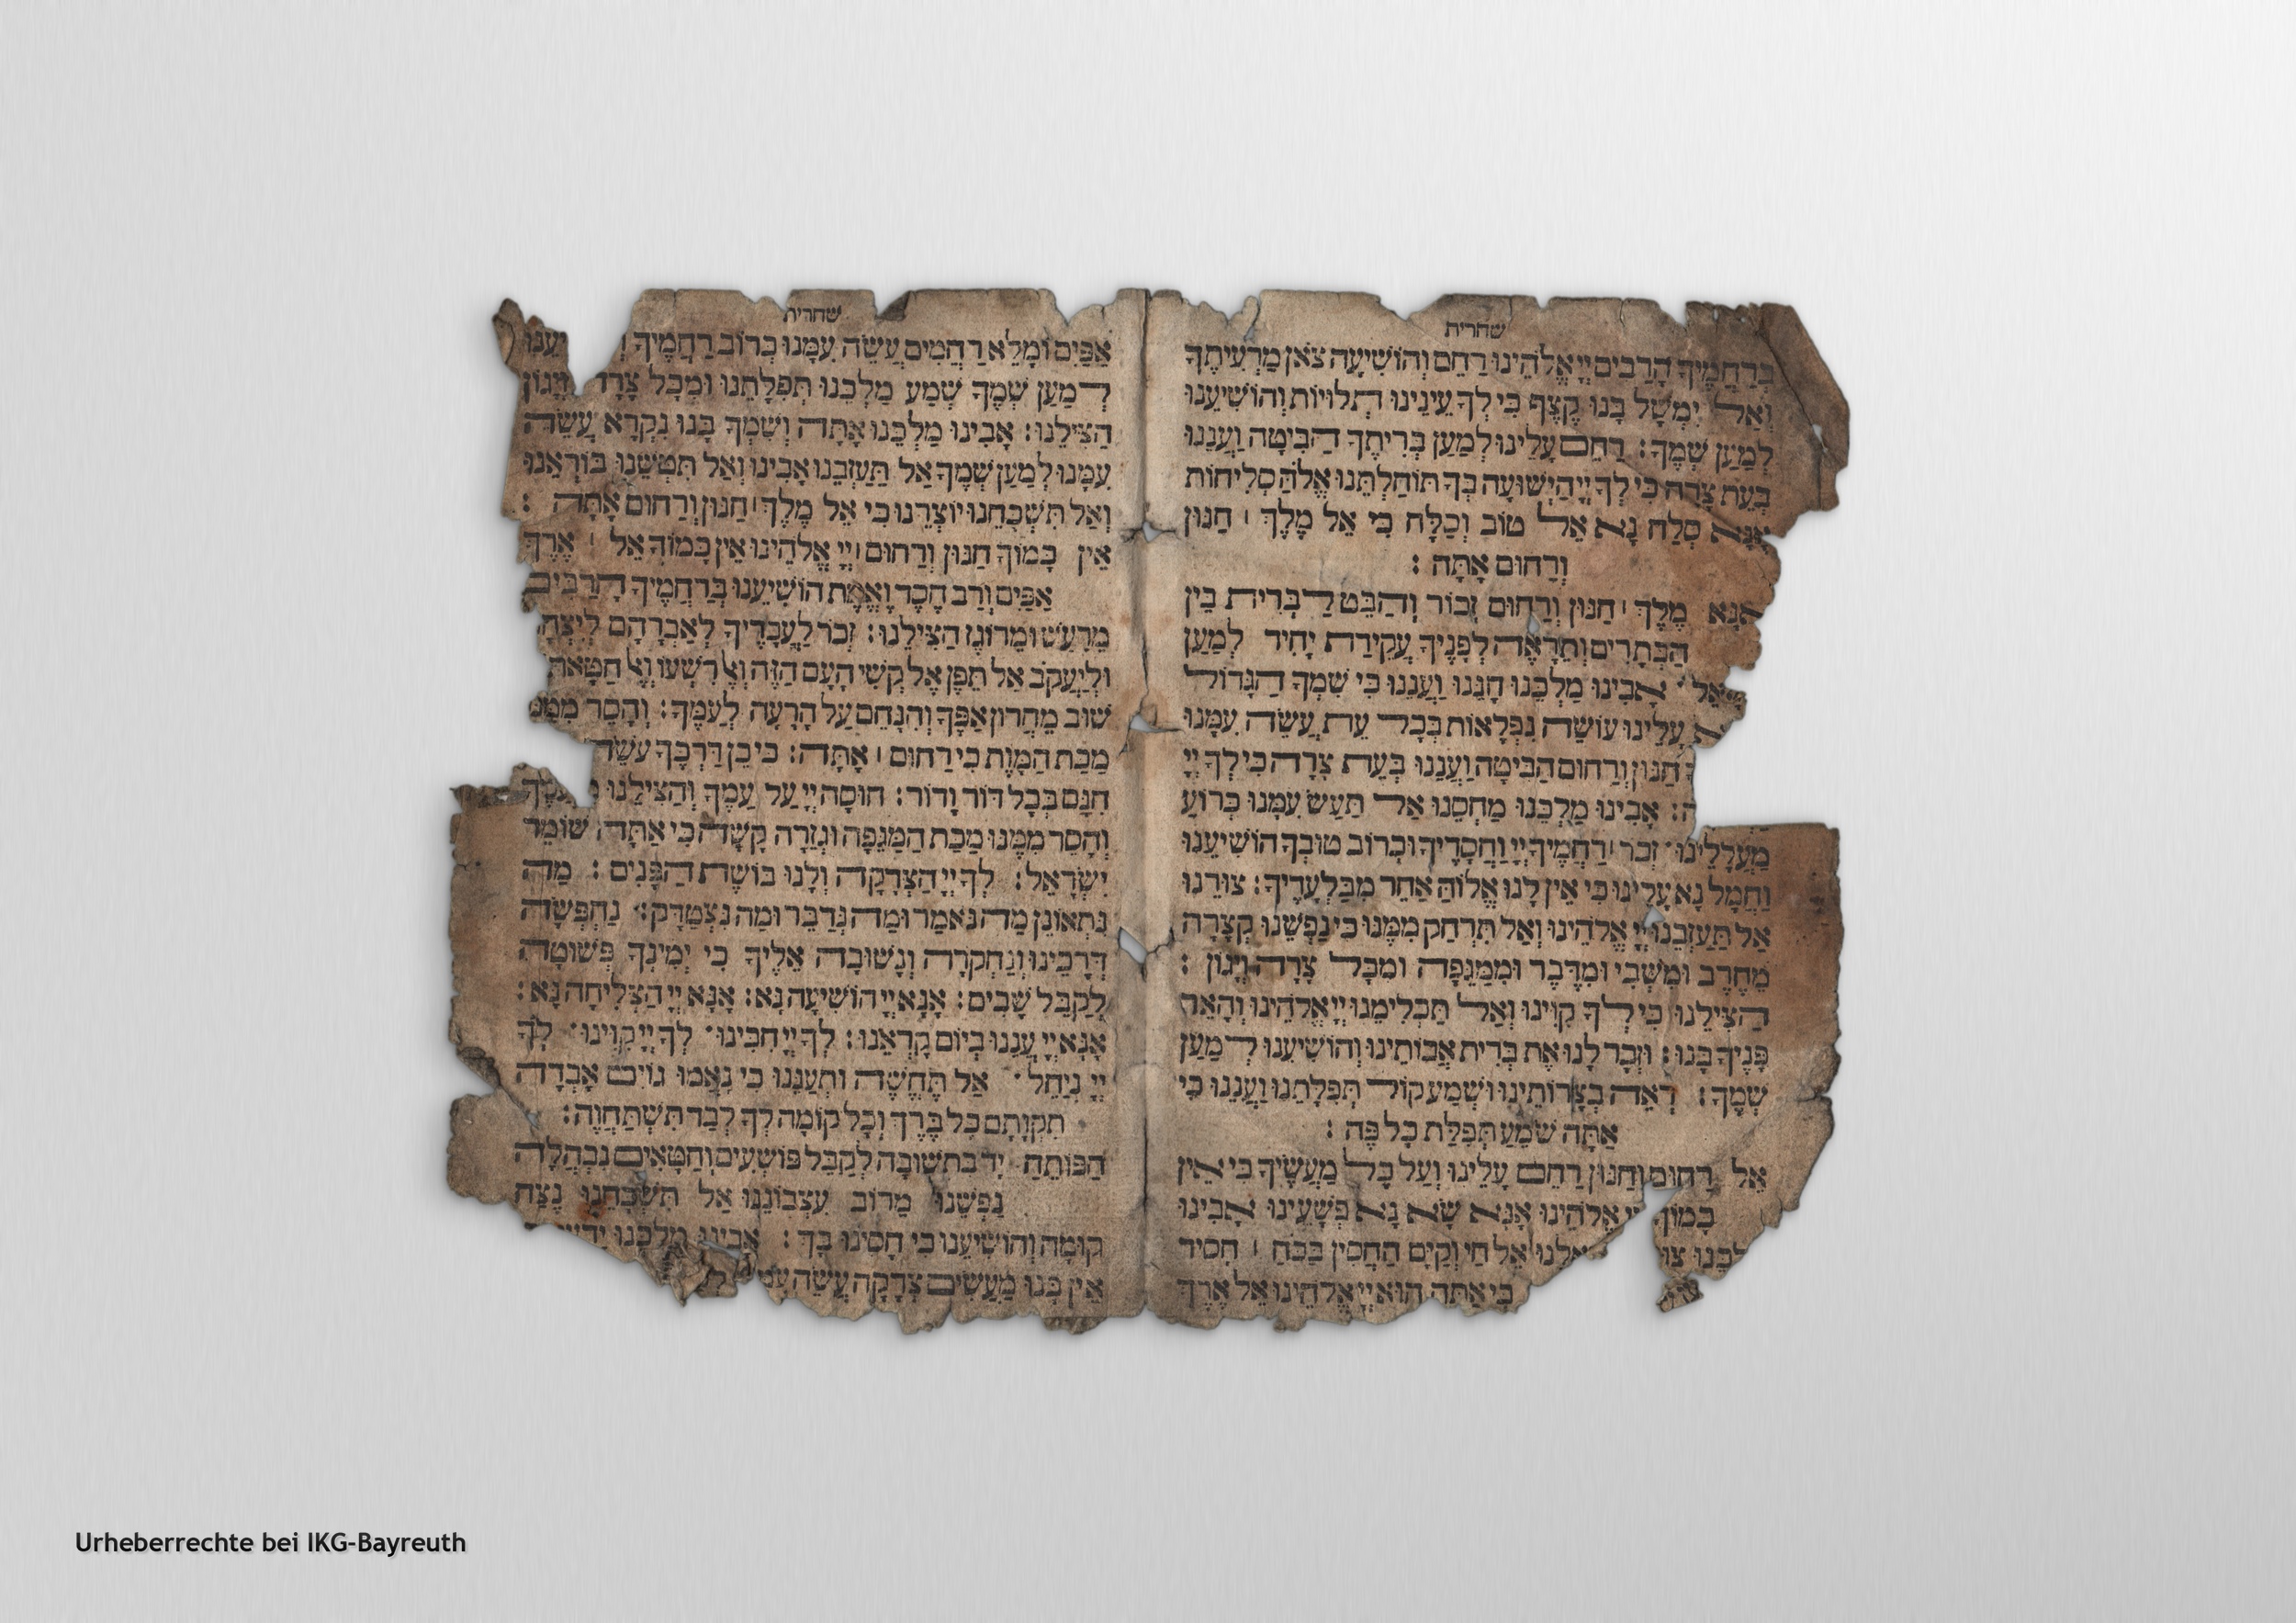 שחרית
בְּרַחֲמֶיךָ הָרַבִּים יְיָ אֱלֹהֵינוּ רַחֵם וְהוֹשִׁיעָה צֹאן מַרְעִיתֶךָ
וְאַל יִמְשָׁל בָּנוּ קֶצֶף כִּי לְךָ עֵינֵינוּ תְלוּיוֹת וְהוֹשִׁיעֵנוּ
לְמַעַן שְׁמֶךָ: רַחֵם עָלֵינוּ לְמַעַן בְּרִיתֶךָ הַבִּיטָה וַעֲנֵנוּ
בְּעֵת צָרָה כִּי לְךָ יְיָ הַיְשׁוּעָה בְּךָ תוֹחַלְתֵּנוּ אֱלוֹהַּ סְלִיחוֹת
אָנָּא סְלַח נָא אֵל טוֹב וְסַלָּח כִּי אֵל מֶלֶךְ חַנּוּן
וְרַחוּם אָתָּה:
אָנָּא מֶלֶךְ חַנּוּן וְרַחוּם זְכוֹר וְהַבֵּט לִבְרִית בֵּין
הַבְּתָרִים וְתֵרָאֶה לְפָנֶיךָ עֲקֵידַת יָחִיד לְמַעַן
אָבִינוּ מַלְכֵּנוּ חָנֵּנוּ וַעֲנֵנוּ כִּי שִׁמְךָ הַגָּדוֹל
עָלֵינוּ עוֹשֵׂה נִפְלָאוֹת בְּכָל עֵת עֲשֵׂה עִמָּנוּ
חַנּוּן וְרַחוּם הַבִּיטָה וַעֲנֵנוּ בְּעֵת צָרָה כִּי לְךָ יְיָ
אָבִינוּ מַלְכֵּנוּ מַחְסֵנוּ אַל תַּעַשׂ עִמָּנוּ כְּרוֹעַ
מַעֲלָלֵינוּ זְכֹר רַחֲמֶיךָ יְיָ וַחֲסָדֶיךָ וּכְרוֹב טוּבְךָ הוֹשִׁיעֵנוּ
וַחֲמָל נָא עָלֵינוּ כִּי אֵין לָנוּ אֱלוֹהַּ אַחֵר מִבַּלְעָדֶיךָ: צוּרֵנוּ
אַל תַּעַזְבֵנוּ יְיָ אֱלֹהֵינוּ וְאַל תִּרְחַק מִמֶּנּוּ כִּי נַפְשֵׁנוּ קְצָרָה
מֵחֶרֶב וּמִשְּׁבִי וּמִדֶּבֶר וּמִמַּגֵּפָה וּמִכָּל צָרָה וְיָגוֹן:
הַצִּילֵנוּ כִּי לְךָ קִוִּינוּ וְאַל תַּכְלִימֵנוּ יְיָ אֱלֹהֵינוּ וְהָאֵר
פָּנֶיךָ בָּנוּ: וּזְכָר לָנוּ אֶת בְּרִית אֲבוֹתֵינוּ וְהוֹשִׁיעֵנוּ לְמַעַן
שְׁמֶךָ: רְאֵה בְצָרוֹתֵינוּ וּשְׁמַע קוֹל תְּפִלָּתֵנוּ וַעֲנֵנוּ כִּי
אַתָּה שֹׁמֵעַ תְּפִלַּת כָּל פֶּה:
אֵל רַחוּם וְחַנּוּן רַחֵם עָלֵינוּ וְעַל כָּל מַעֲשֶׂיךָ כִּי אֵין
כָּמוֹךָ יְיָ אֱלֹהֵינוּ אָנָּא שָׂא נָא פְשָׁעֵינוּ אָבִינוּ
אֵל חַי וְקַיָּם הַחֲסִין בַּכֹּחַ חָסִיד
כִּי אַתָּה הוּא יְיָ אֱלֹהֵינוּ אֵל אֶרֶךְ
שחרית
אַפַּיִם וּמָלֵא רַחֲמִים עֲשֵׂה עִמָּנוּ כְּרוֹב רַחֲמֶיךָ
לְמַעַן שְׁמֶךָ שְׁמַע מַלְכֵּנוּ תְּפִלָּתֵנוּ וּמִכָּל צָרָה וְיָגוֹן
הַצִּילֵנוּ: אָבִינוּ מַלְכֵּנוּ אָתָּה וְשִׁמְךָ בָּנוּ נִקְרָא עֲשֵׂה
עִמָּנוּ לְמַעַן שְׁמֶךָ אַל תַּעַזְבֵנוּ אָבִינוּ וְאַל תִּטְּשֵׁנוּ בּוֹרְאֵנוּ
וְאַל תִּשְׁכָּחֵנוּ יוֹצְרֵנוּ כִּי אֵל מֶלֶךְ חַנּוּן וְרַחוּם אָתָּה:
אֵין כָּמוֹךָ חַנּוּן וְרַחוּם יְיָ אֱלֹהֵינוּ אֵין כָּמוֹךָ אֵל אֶרֶךְ
אַפַּיִם וְרַב חֶסֶד וֶאֱמֶת הוֹשִׁיעֵנוּ בְּרַחֲמֶיךָ הָרַבִּים
מֵרַעַשׁ וּמֵרוֹגֶז הַצִּילֵנוּ: זְכֹר לַעֲבָדֶיךָ לְאַבְרָהָם לְיִצְחָק
וּלְיַעֲקֹב אַל תֵּפֶן אֶל קְשִׁי הָעָם הַזֶּה וְאֶל רִשְׁעוֹ וְאֶל חַטָּאתוֹ
שׁוּב מֵחֲרוֹן אַפֶּךָ וְהִנָּחֵם עַל הָרָעָה לְעַמֶּךָ: וְהָסֵר מִמֶּנּוּ
מַכַּת הַמָּוֶת כִּי רַחוּם אָתָּה: כִּי כֵן דַּרְכֶּךָ עֹשֶׂה
חִנָּם בְּכָל דּוֹר וָדוֹר: חוּסָה יְיָ עַל עַמֶּךָ וְהַצִּילֵנוּ
וְהָסֵר מִמֶּנּוּ מַכַּת הַמַּגֵּפָה וּגְזֵרָה קָשָׁה כִּי אַתָּה שׁוֹמֵר
יִשְׂרָאֵל: לְךָ יְיָ הַצְּדָקָה וְלָנוּ בּוֹשֶׁת הַפָּנִים: מַה
נִּתְאוֹנֵן מַה נֹּאמַר וּמַה נְּדַבֵּר וּמַה נִּצְטַדָּק: נַחְפְּשָׂה
דְרָכֵינוּ וְנַחְקֹרָה וְנָשׁוּבָה אֵלֶיךָ כִּי יְמִינְךָ פְּשׁוּטָה
לְקַבֵּל שָׁבִים: אָנָּא יְיָ הוֹשִׁיעָה נָּא: אָנָּא יְיָ הַצְלִיחָה נָּא:
אָנָּא יְיָ עֲנֵנוּ בְיוֹם קָרְאֵנוּ: לְךָ יְיָ חִכִּינוּ לְךָ יְיָ קִוִּינוּ לְךָ
יְיָ נְיַחֵל אַל תֶּחֱשֶׁה וּתְעַנֵּנוּ כִּי נָאֲמוּ גוֹיִם אָבְדָה
תִקְוָתָם כָּל בֶּרֶךְ וְכָל קוֹמָה לְךָ לְבַד תִּשְׁתַּחֲוֶה:
הַפּוֹתֵחַ יָד בִּתְשׁוּבָה לְקַבֵּל פּוֹשְׁעִים וְחַטָּאִים נִבְהֲלָה
נַפְשֵׁנוּ מֵרוֹב עִצְבוֹנֵנוּ אַל תִּשְׁכָּחֵנוּ נֶצַח
קוּמָה וְהוֹשִׁיעֵנוּ כִּי חָסִינוּ בָךְ: אָבִינוּ מַלְכֵּנוּ
אֵין בָּנוּ מַעֲשִׂים צְדָקָה עֲשֵׂה
Urheberrechte bei IKG-Bayreuth